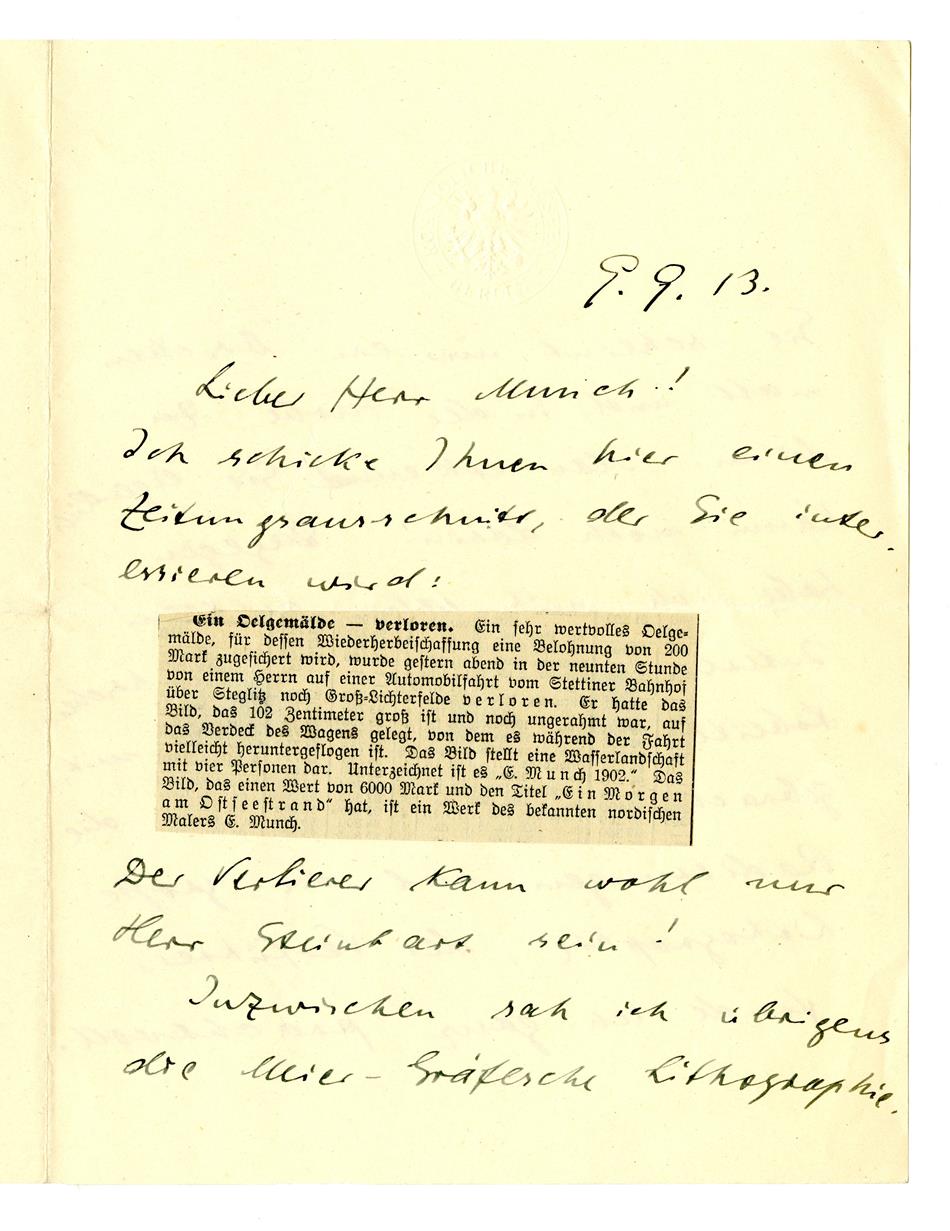 9. 9. 13.
Lieber Herr Munch!
Ich schicke Ihnen hier einen
Zeitungsausschnitt, der Sie inter-
essieren wird:
Ein Oelgemälde — verloren. Ein sehr wertvolles Oelge-
mälde, für dessen Wiederherbeischaffung eine Belohnung von 200
Mark zugesichert wird, wurde gestern abend in der neunten Stunde
von einem Herrn auf einer Automobilfahrt vom Stettiner Bahnhof
über Steglitz noch Groß-Lichterfelde verloren. Er hatte das
Bild, das 102 Zentimeter groß ist und noch ungerahmt war, auf
das Verdeck des Wagens gelegt, von dem es während der Fahrt
vielleicht heruntergeflogen ist. Das Bild stellt eine Wasserlandschaft
mit vier Personen dar. Unterzeichnet ist es „E. Munch 1902.“ Das
Bild, das einen Wert von 6000 Mark und den Titel „Ein Morgen
am Ostseestrand“ hat, ist ein Werk des bekannten nordischen
Malers E. Munch.
Der Verlierer kann wohl nur
Herr Steinbart sein!
Inzwischen sah ich übrigens
die Meier-Gräfesche Lithographie.